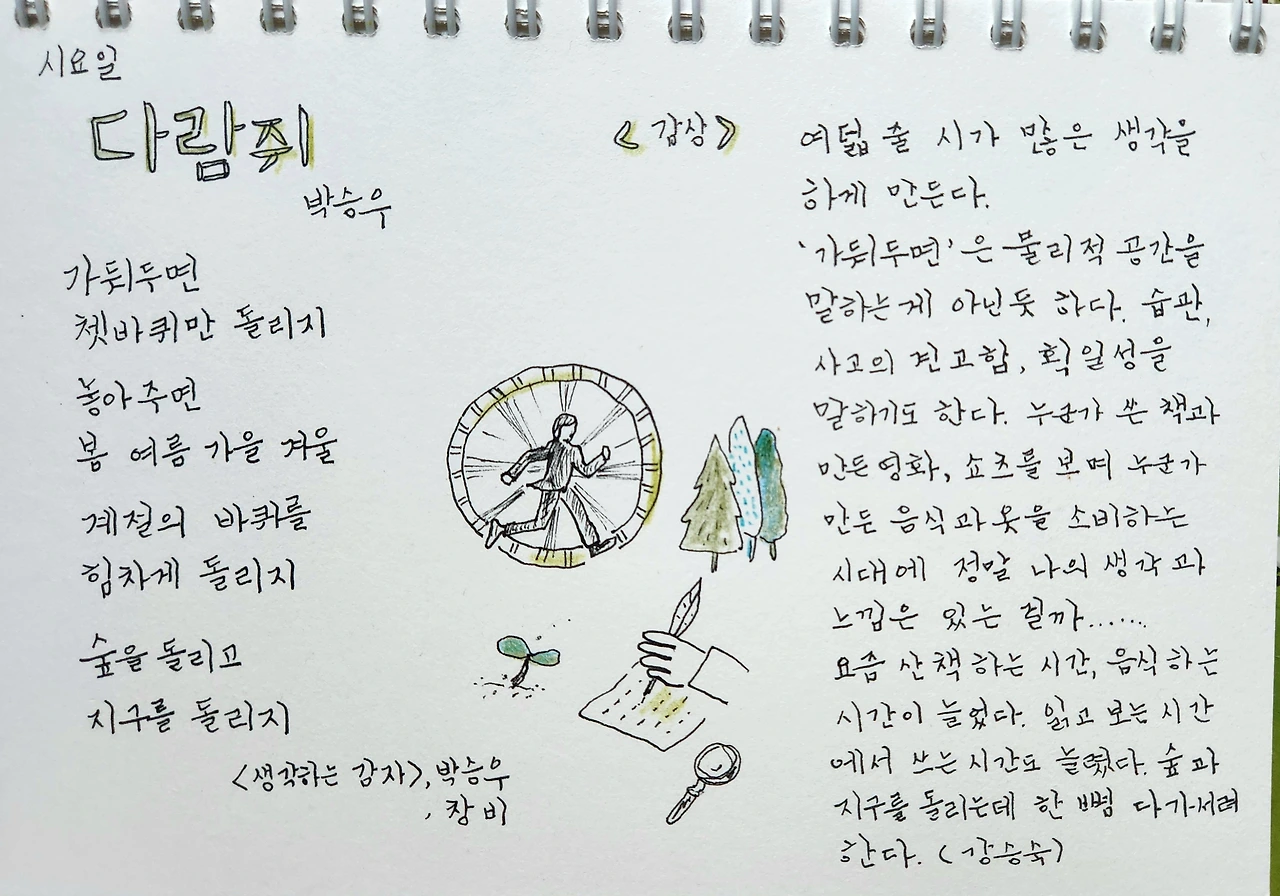 시요일
다람쥐
박승우
가둬두면
쳇바퀴만 돌리지
놓아주면
봄 여름 가을 겨울
계절의 바퀴를
힘차게 돌리지
숲을 돌리고
지구를 돌리지
<생각하는 감자>, 박승우
, 창비
<감상>
여덟 줄 시가 많은 생각을
하게 만든다.
'가둬두면'은 물리적 공간을
말하는게 아닌듯 하다. 습관,
사고의 견고함, 획일성을
말하기도 한다. 누군가 쓴 책과
만든영화, 쇼츠를 보며 누군가
만든 음식과옷을 소비하는
시대에 정말 나의 생각과
느낌은 있는 걸까......
요즘 산책하는 시간, 음식하는
시간이 늘었다. 읽고 보는 시간
에서 쓰는 시간도 늘렸다. 숲과
지구를 돌리는데 한 뼘 다가서려
한다. (강승숙)